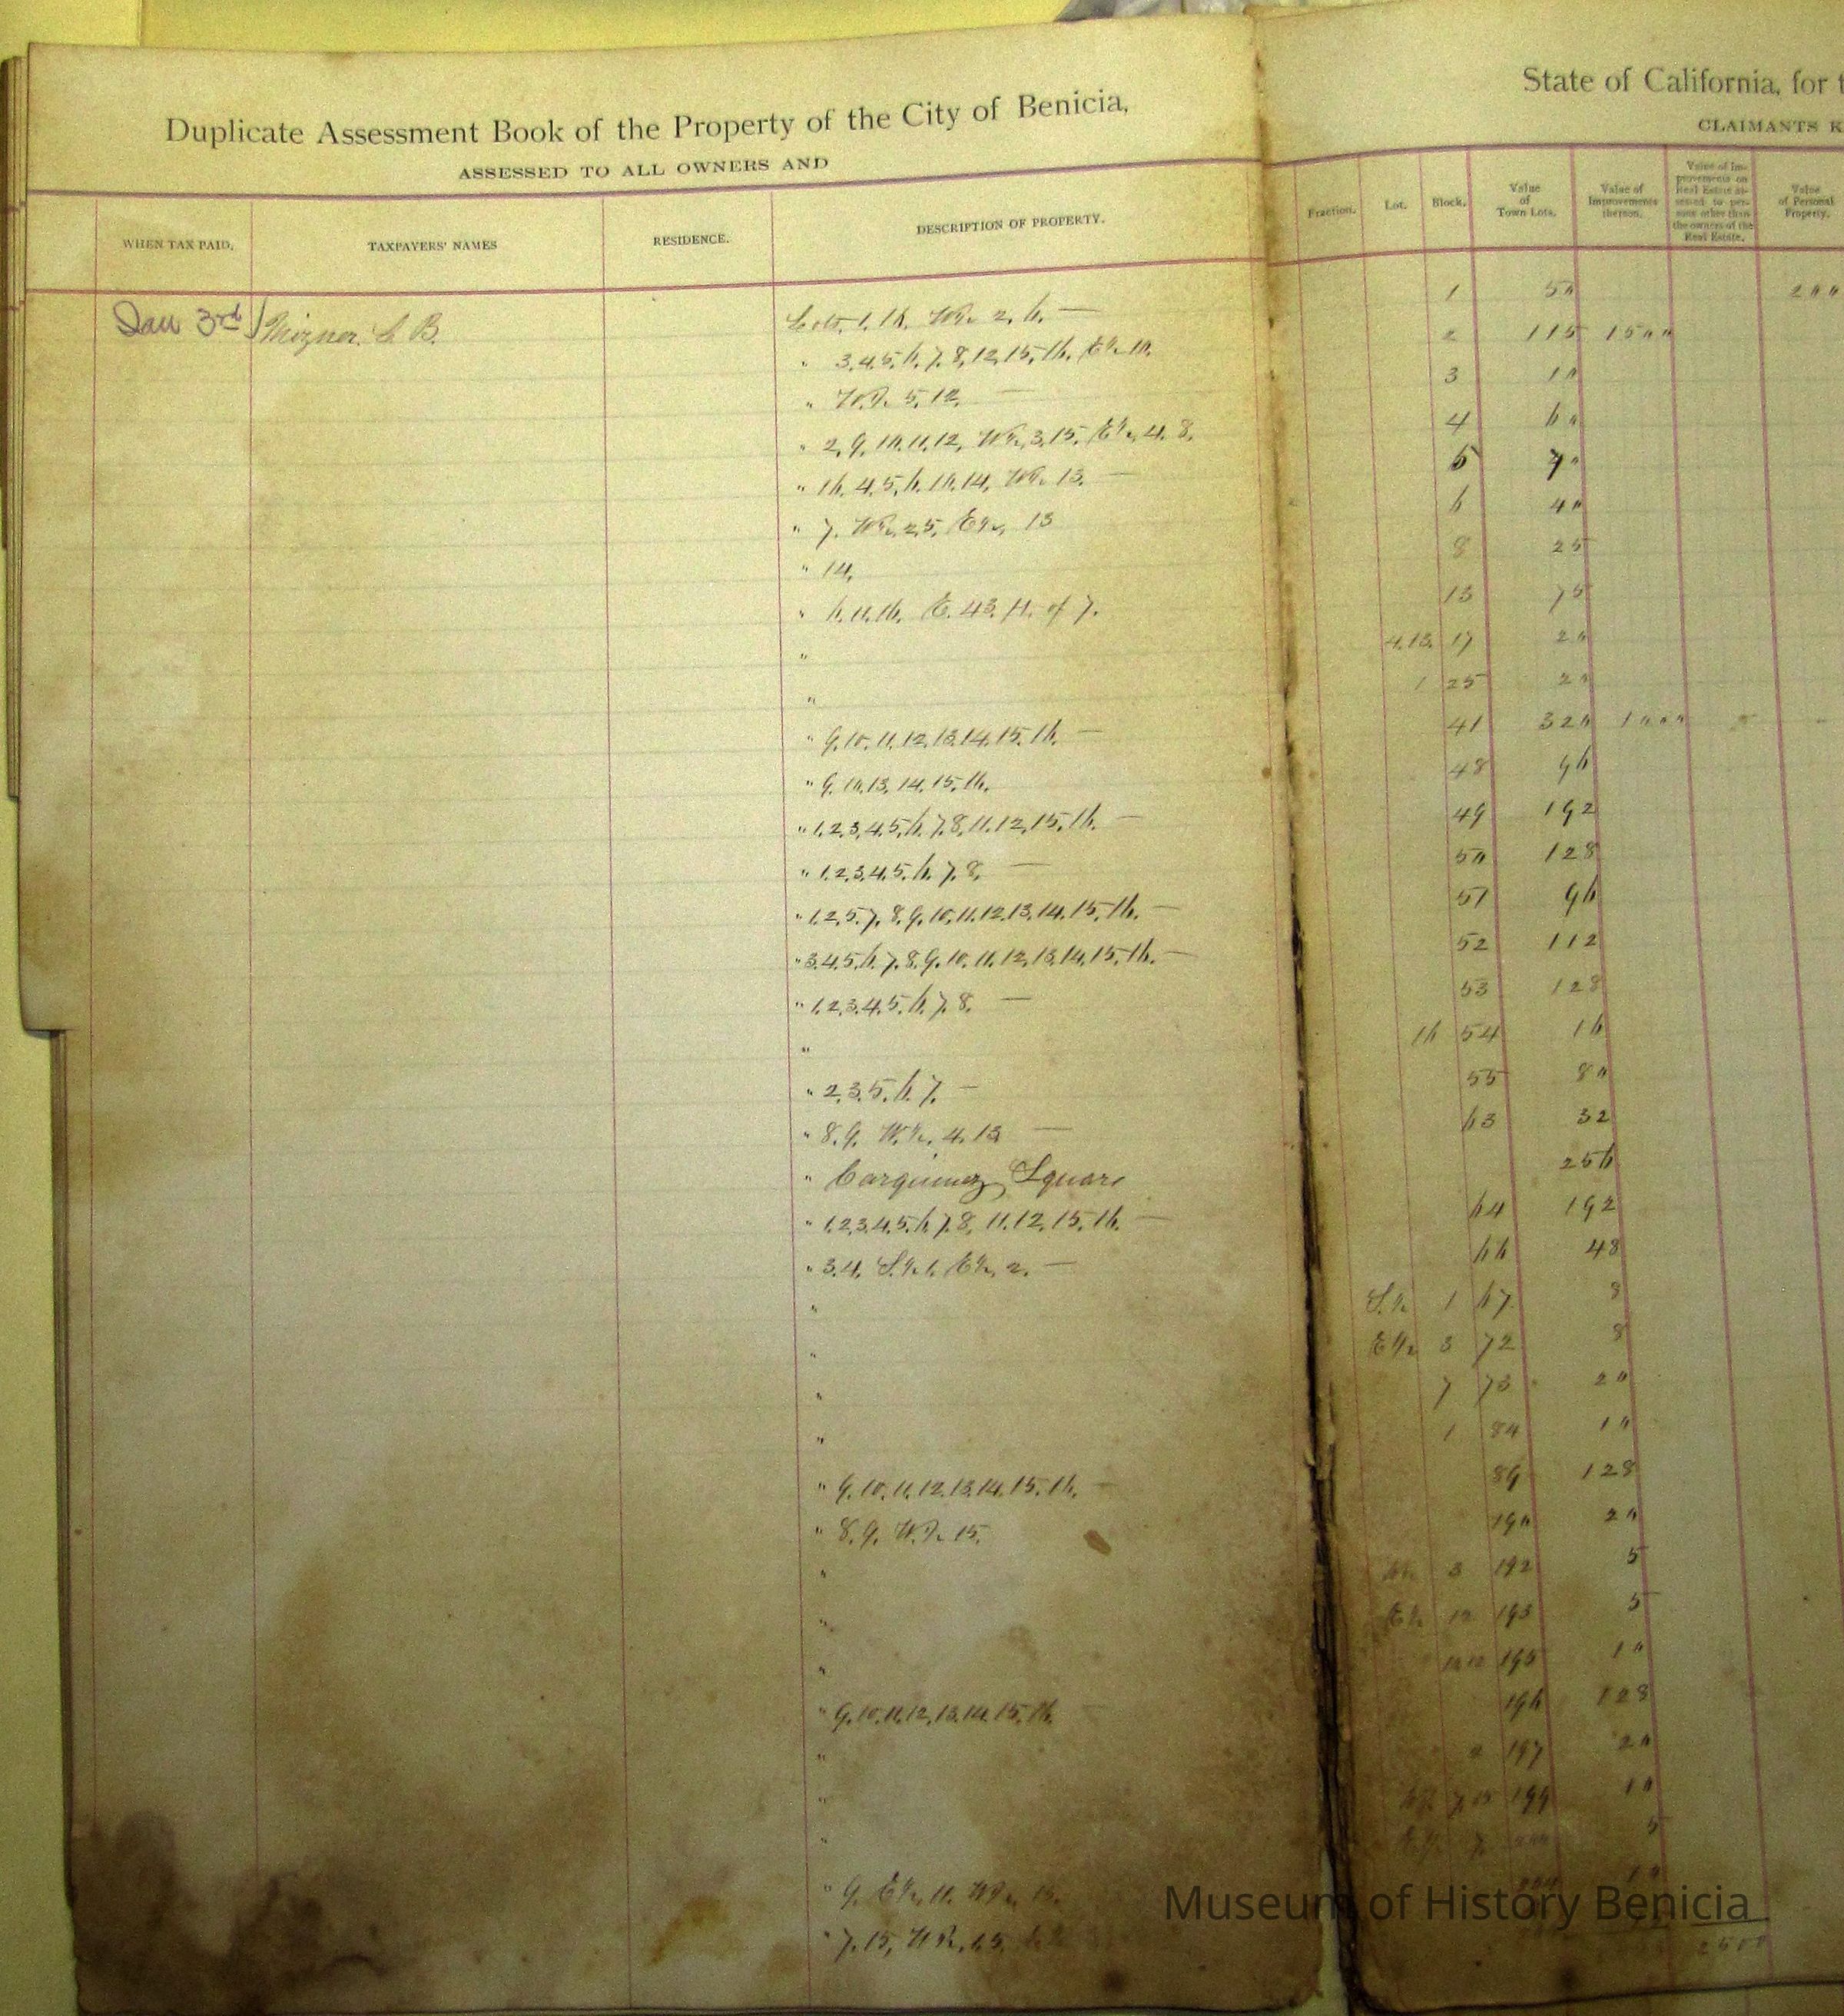 Duplicate Assessment Book of the Property of the City of Benicia,
ASSESSED TO ALL OWNERS AND
State of California, for t
CLAIMANTS K
WHEN TAX PAID.
TAXPAYERS' NAMES
RESIDENCE.
DESCRIPTION OF PROPERTY.
Fraction.
Lot.
Block.
Value of Town Lots.
Value of Improvements thereon.
Value of Improvements on Real Estate assessed to persons other than the owners of the Real Estate.
Value of Personal Property.
Jan 3rd Mizner. L B. Lots. 1. 16. W½ 2, 6. — 1 50 200
" 3,4,5,6,7,8,12,15,16. E½ 10. 2 115 1500
" W½ 5, 12, — 3 10
" 2, 9, 10, 11, 12, W½ 3, 15. E½ 4. 8. 4 60
" 16. 4, 5, 6. 10. 14, W½ 13. — 5 70
" 7. W½ 2,5, E½, 13 6 40
" 14, 8 25
" 6. 11. 16. E. 43. ft. of 7. 13 75
" 4.13. 17 20
" 1 25 20
" 9. 10. 11. 12. 13. 14. 15. 16. — 41 320 1000
" 9. 10. 13. 14. 15. 16. 48 96
" 1. 2. 3. 4. 5. 6. 7. 8. 11. 12. 15. 16. — 49 192
" 1. 2. 3. 4. 5. 6. 7. 8. — 50 128
" 1. 2. 5. 7. 8. 9. 10. 11. 12. 13. 14. 15. 16. — 51 96
" 3. 4. 5. 6. 7. 8. 9. 10. 11. 12. 13. 14. 15. 16. — 52 112
" 1. 2. 3. 4. 5. 6. 7. 8. — 53 128
" 16 54 16
" 2. 3. 5. 6. 7. — 55 80
" 8. 9. W½. 4. 13 — 63 32
" Carquinez Square 256
" 1. 2. 3. 4. 5. 6. 7. 8. 11. 12. 15. 16. — 64 192
" 3. 4. S.½ 1. E½ 2. — 66 48
" S.½ 1 67 8
" E½ 3 72 8
" 7 73 20
" 1 84 10
" 9. 10. 11. 12. 13. 14. 15. 16. — 89 128
" 8. 9. W½ 15. 190 20
" 3 192 5
" E½ 12 193 5
" 195 10
" 9. 10. 11. 12. 13. 14. 15. 16. 196 128
" 197 20
" 199 10
" 5
" 9. E½, 11. W½, 13. 10
" 7. 15, W½, 2500
Museum of History Benicia